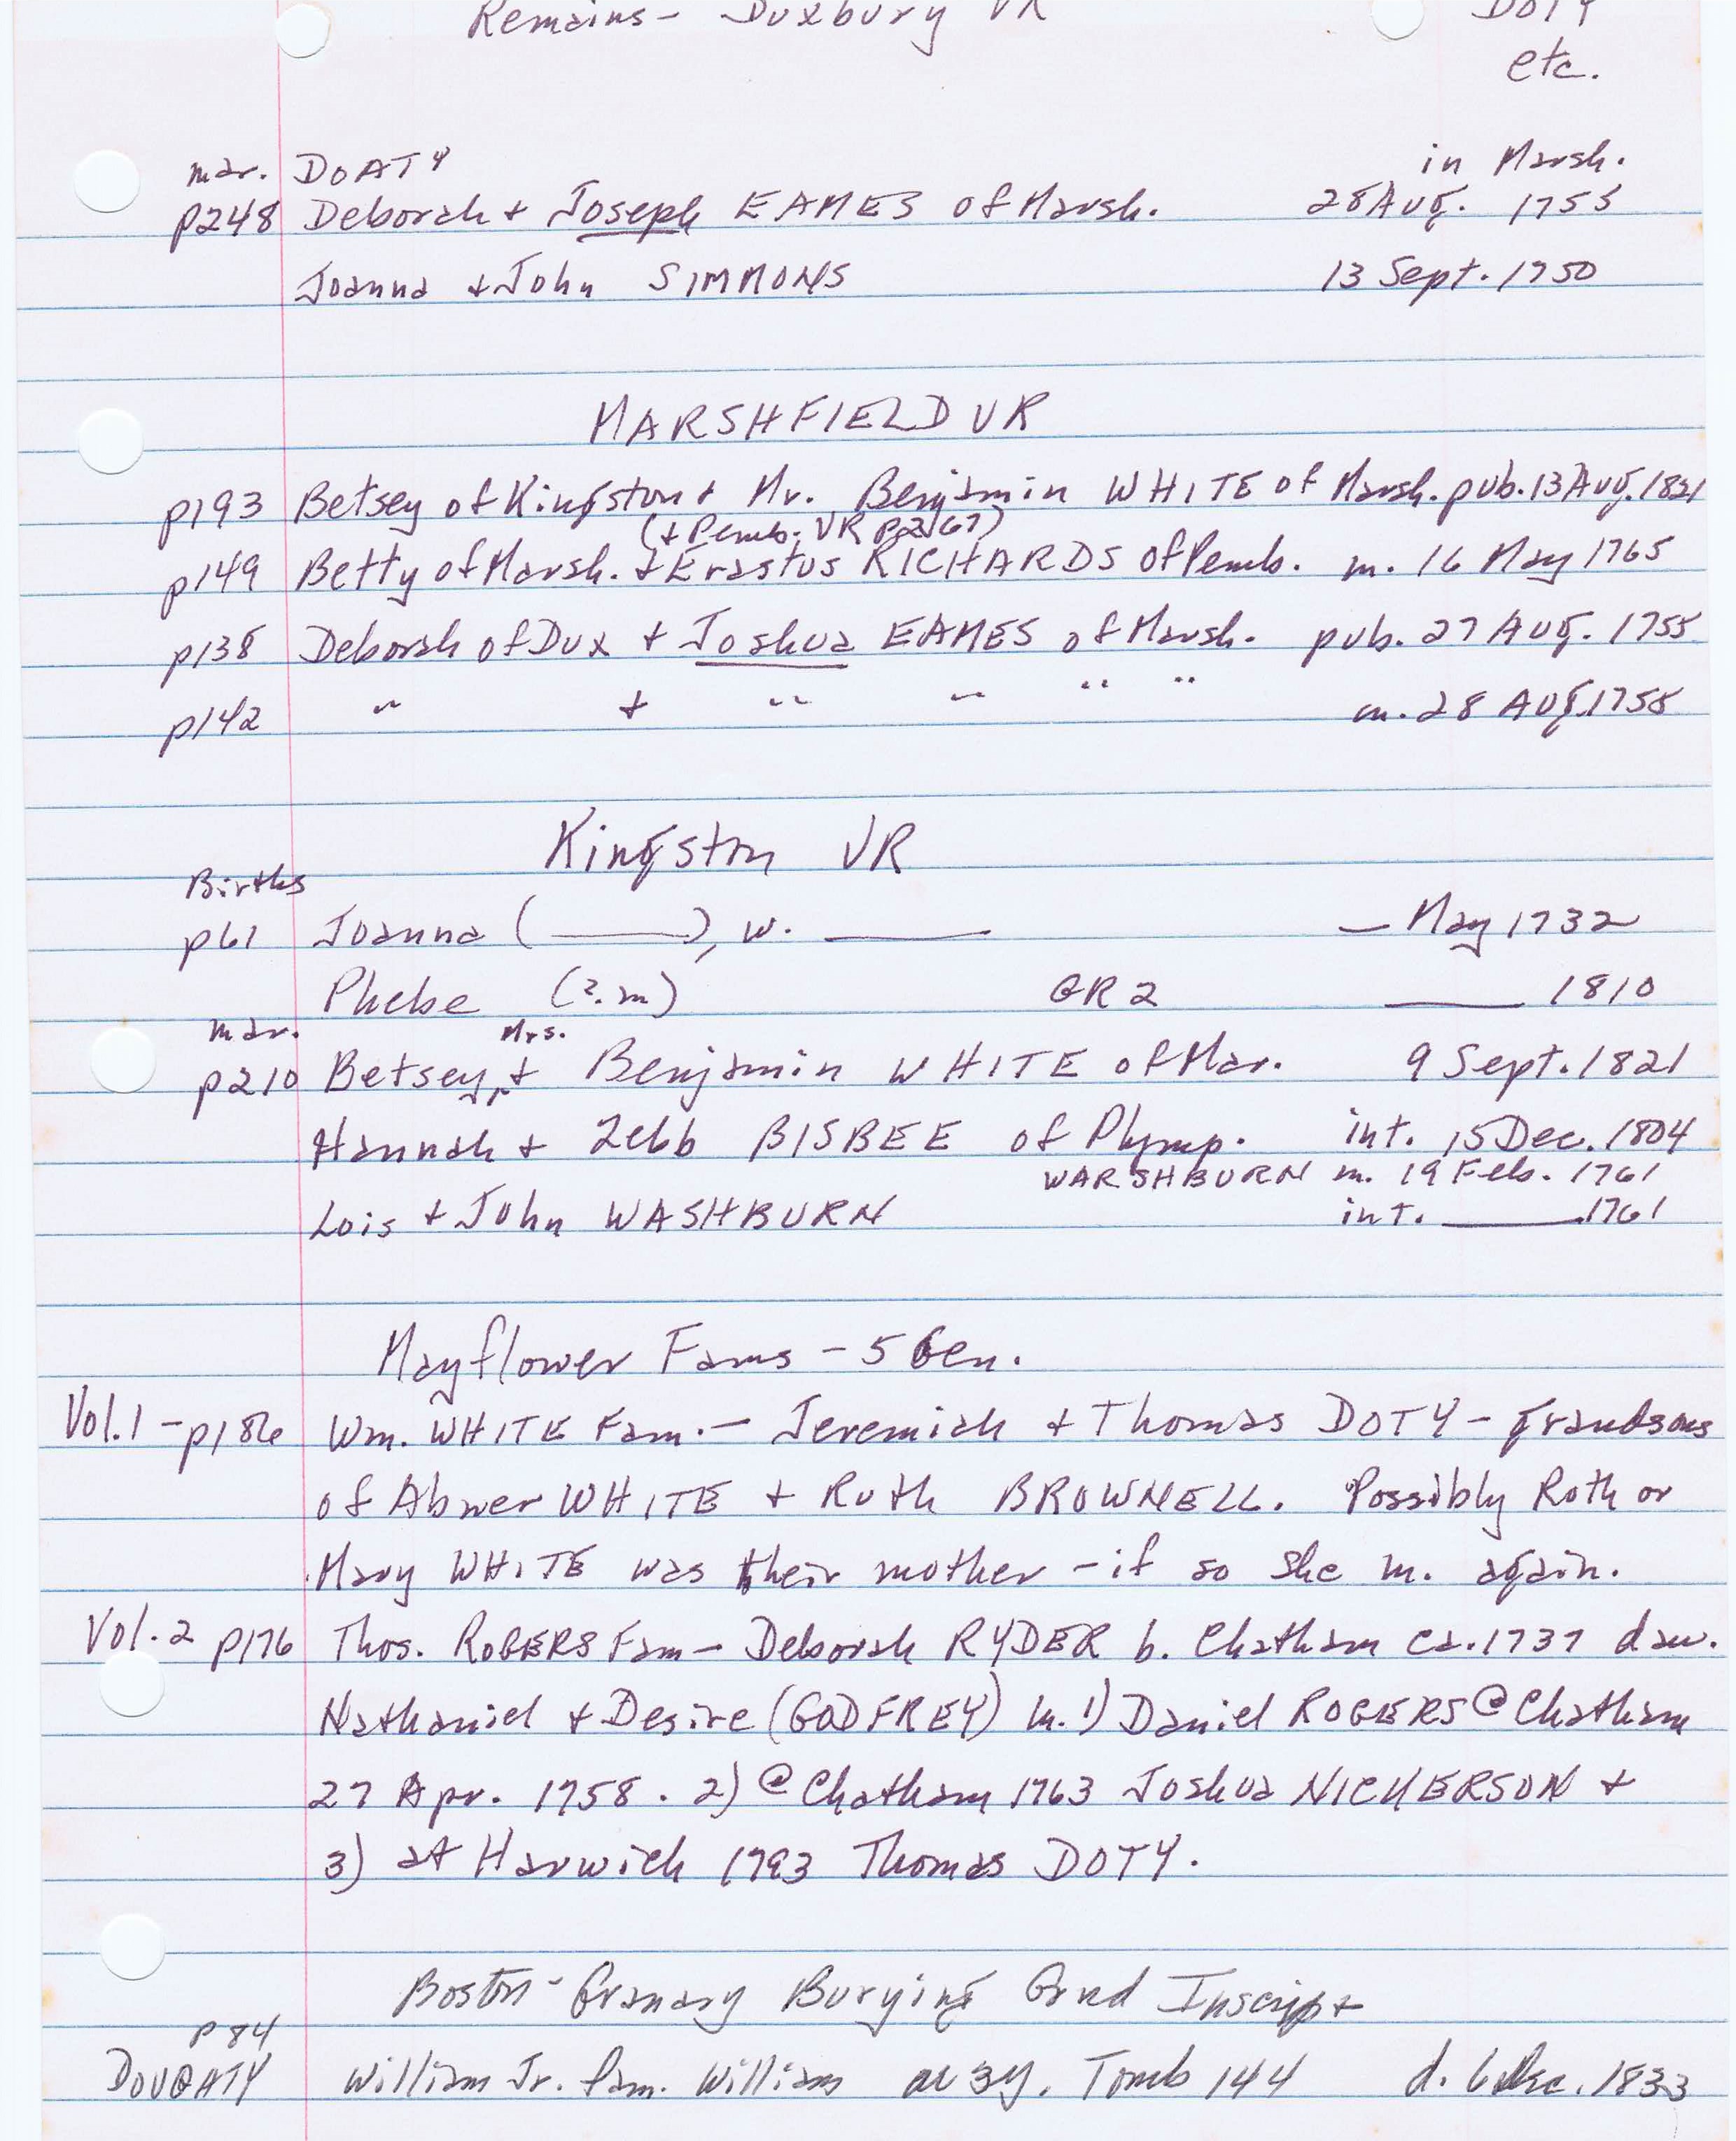 Remains - Duxbury VR DOTY
etc.
mar. DOATY in Marsh.
p248 Deborah + Joseph EAMES of Marsh. 28 Aug. 1755
Joanna + John SIMMONS 13 Sept. 1750
MARSHFIELD VR
p193 Betsey of Kingston + Mr. Benjamin WHITE of Marsh. pub. 13 Aug. 1821
(+ Pemb. VR p267)
p149 Betty of Marsh. + Erastus RICHARDS of Pemb. m. 16 May 1765
p138 Deborah of Dux + Joshua EAMES of Marsh. pub. 27 Aug. 1755
p142 " + " " " " m. 28 Aug. 1755
Kingston VR
Births
p61 Joanna (____), w. ____ — May 1732
Phebe (?. m) GR 2 ____ 1810
mar. Mrs.
p210 Betsey, + Benjamin WHITE of Mar. 9 Sept. 1821
Hannah + Zebb BISBEE of Plymp. int. 15 Dec. 1804
WARSHBURN m. 19 Feb. 1761
Lois + John WASHBURN int. ____ 1761
Mayflower Fams - 5 Gen.
Vol. 1 - p186 Wm. WHITE Fam. - Jeremiah + Thomas DOTY - grandsons
of Abner WHITE + Ruth BROWNELL. Possibly Ruth or
Mary WHITE was their mother - if so she m. again.
Vol. 2 p176 Thos. ROGERS Fam - Deborah RYDER b. Chatham ca. 1737 dau.
Nathaniel + Desire (GODFREY) m. 1) Daniel ROGERS @ Chatham
27 Apr. 1758. 2) @ Chatham 1763 Joshua NICKERSON +
3) at Harwich 1793 Thomas DOTY.
Boston - Granary Burying Grnd Inscript
p 84
DOUGATY William Jr. fam. William ae 3y. Tomb 144 d. 6 Dec. 1833